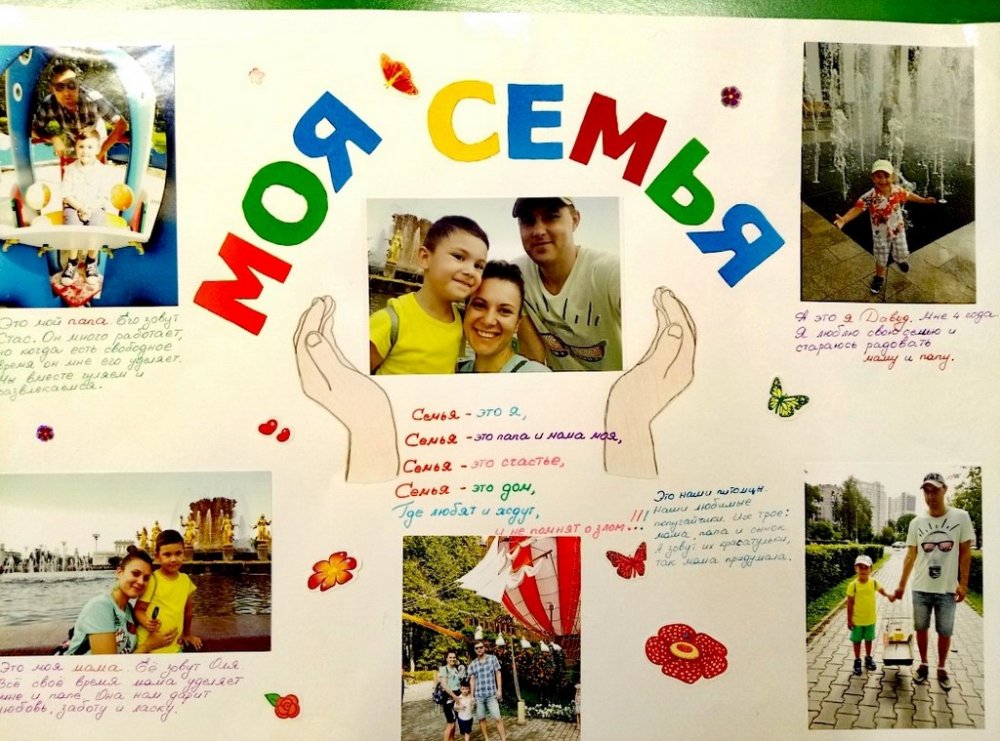 МОЯ СЕМЬЯ
Это мой папа Его зовут
Стас. Он много работает,
но когда есть свободное
время он мне его уделяет.
Мы вместе гуляем и
развлекаемся.
А это я Давид. Мне 4 года.
Я люблю свою семью и
стараюсь радовать
маму и папу.
Семья - это я,
Семья - это папа и мама моя,
Семья - это счастье,
Семья - это дом,
Где любят и ждут,
и не помнят о злом...!!!
Это наши питомцы.
Наши любимые
попугайчики. Их трое:
мама, папа и сынок.
А зовут их фасатульки,
так мама придумала.
Это моя мама. Её зовут Оля.
Всё своё время мама уделяет
мне и папе. Она нам дарит
любовь, заботу и ласку.